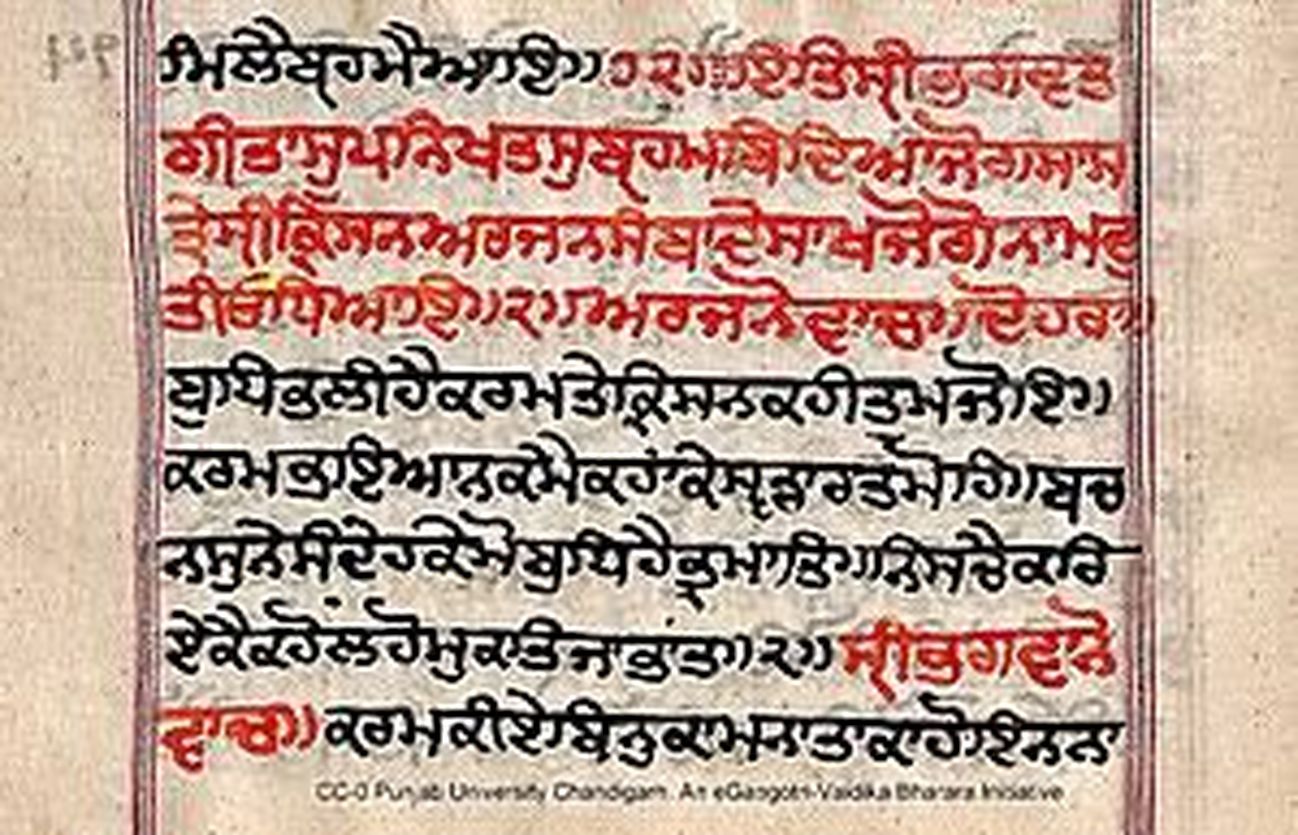 ਮਿਲੈਬ੍ਰਹਮੈਆਇ॥੭੨॥ਇਤਿਸ੍ਰੀਭਗਵਤ
ਗੀਤਾਸੁਪਨਿਖਤਸੁਬ੍ਰਹਮਬਿਦਿਆਜੋਗਸਾਸ
ਤ੍ਰੇਸ੍ਰੀਕ੍ਰਿਸਨਅਰਜਨਸੰਬਾਦੇਸਾਖਜੋਗੋਨਾਮਦੁ
ਤੀਓਧਿਆਇ॥੨॥ਅਰਜਨੋਵਾਚ॥ਦੋਹਰਾ॥
ਬੁਧਿਭਲੀਹੈਕਰਮਤੇਕ੍ਰਿਸਨਕਹੀਤੁਮਜੋਇ॥
ਕਰਮ ਡਾਰਤਮੋਹਿ॥ਬਚ
ਨਸੁਨੇਸੰਦੇਹਕੇਮੋਬੁਧਿਹੈਭ੍ਰਮਾਤਿ॥ਨਿਸਚੈਕਰਿ
ਏਕੈਕਹੋਲਹੋਮੁਕਤਿਜਾਭਾਤ॥੨॥ਸ੍ਰੀਭਗਵਾਨੋ
ਵਾਚ॥ਕਰਮਕੀਏਬਿਨੁਕਾਮਨਾਤਾਕਾਹੋਇਨਨਾ
CC-0 Punjab University Chandigarh. An eGangotri-Vaidika Bharata Initiative